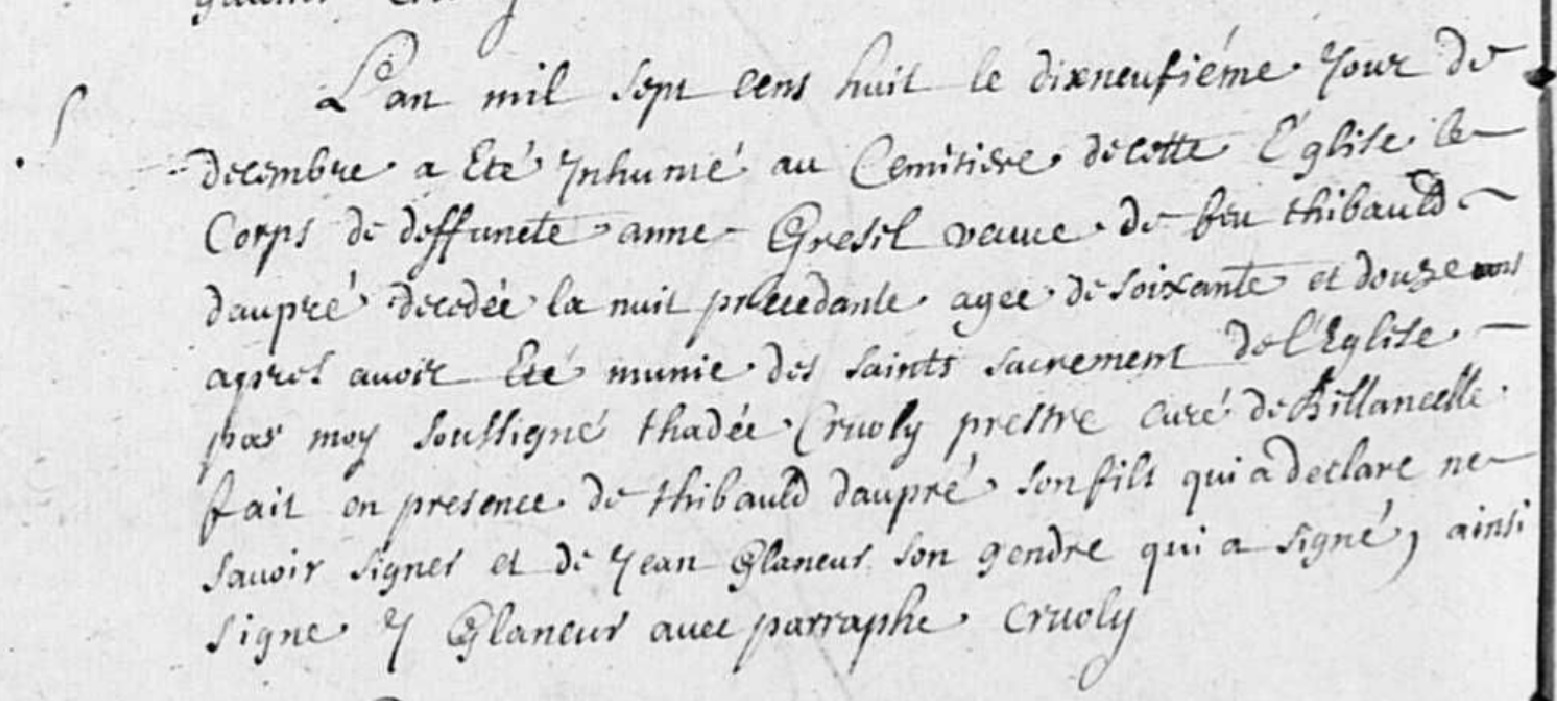 L'an mil sept cens huit le dixneufiéme Jour de
decembre a Eté Jnhumé au Cemitiere de cette Église le
Corps de deffuncte anne Gresil veuve de feu thibauld
daupré decedée la nuit precedante agee de soixante et douze ans
apres avoir Eté munie des saints sacrement de l'Eglise
par moy soussigné thadée Cruoly prestre curé de Billancelle
fait en presence de thibauld daupré son fils qui a declare ne
savoir signer et de Jean Glaneur son gendre qui a signé, ainsi
signe J Glaneur avec parraphe Cruoly